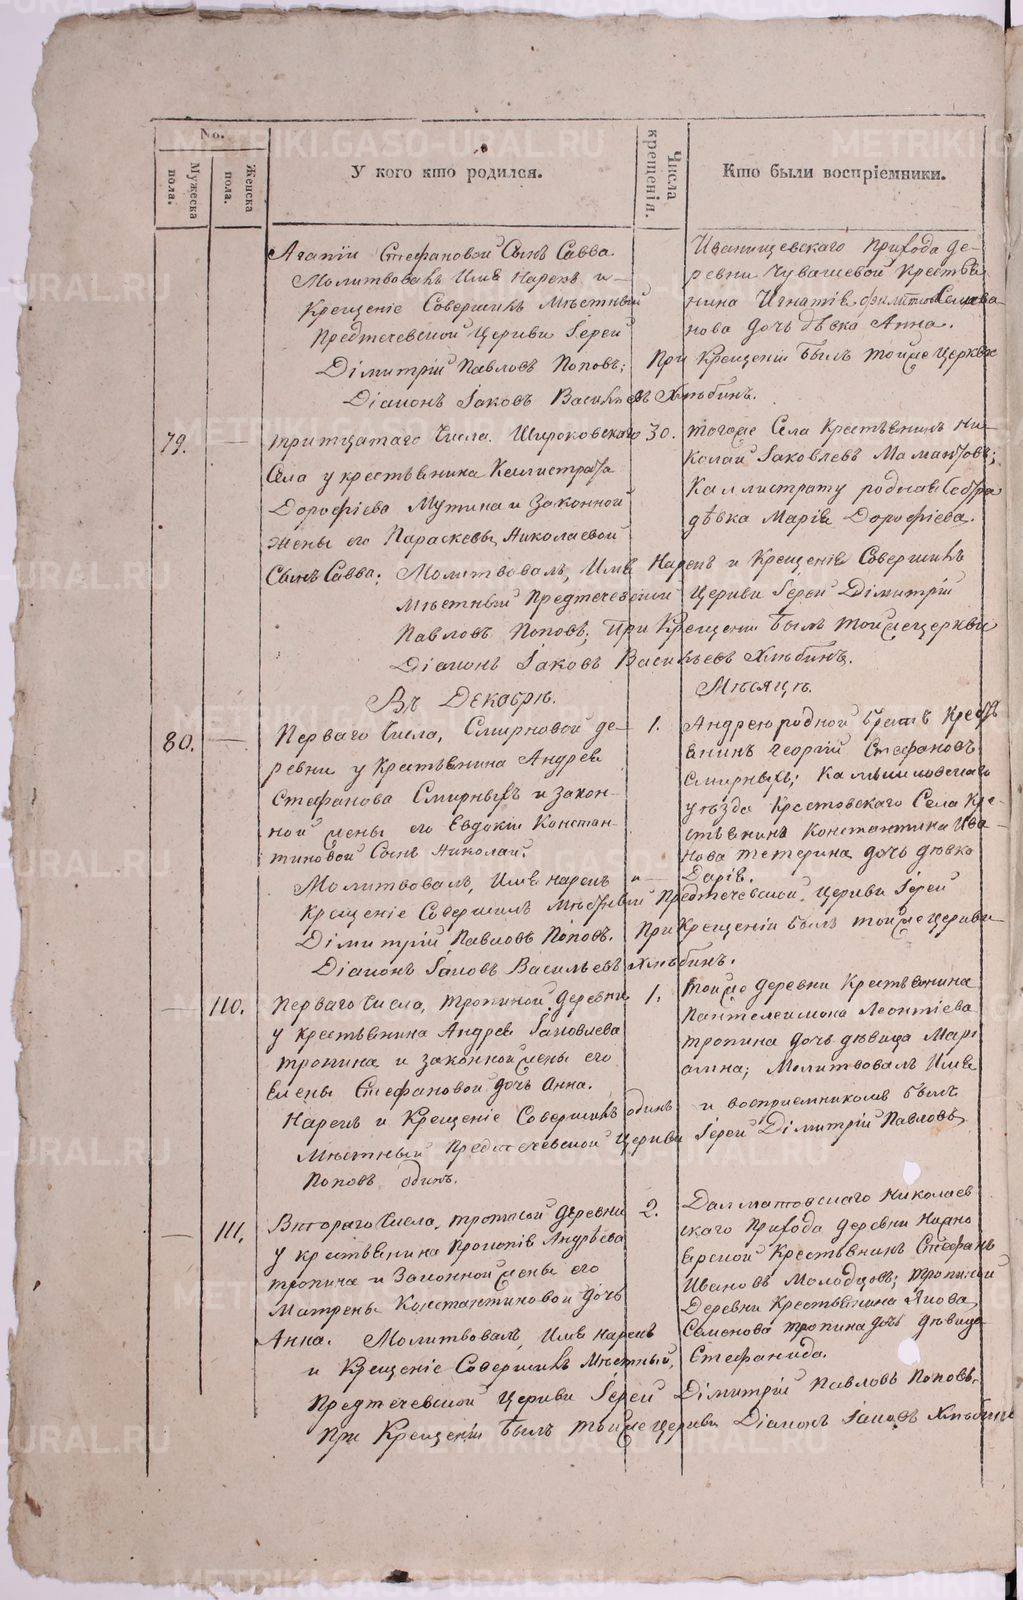 No.
Мужеска пола.
Женска пола.
У кого кто родился.
Числа крещенія.
Кто были воспріемники.
Агапіи Стефановой Сынъ Савва
Молитвовалъ Имя Нарекъ и
Крещеніе Совершилъ Мѣстный
Предтечевской Церкви Іерей
Димитрій Павловъ Поповъ;
Діаконъ Іаковъ Васильевъ Хлѣбинъ.
Иванищевскаго прихода де-
ревни Чувашевой Крестья
нина Игнатія Селива
нова дочь дѣвка Анна.
При Крещеніи былъ тойже церкви
79. —
тритцатаго Числа. Широковскаго
Села у крестьянина Каллистрата
Дорофіева Мутина и Законной
жены его Параскевы Николаевой
Сынъ Савва. Молитвовалъ, Имя Нарекъ и Крещеніе Совершилъ
Мѣстный Предтечевской Церкви Іерей Димитрій
Павловъ Поповъ; При Крещеніи былъ тойже церкви
Діаконъ Іаковъ Васильевъ Хлѣбинъ.
30.
тогоже Села Крестьянинъ Ни-
колай Іаковлевъ Мамонтовъ;
Каллистрату родная Сестра
дѣвка Марія Дорофіева.
Въ Декабрѣ. Мѣсяцѣ.
80. —
Перваго Числа, Смирновой де-
ревни у Крестьянина Андрея
Стефанова Смирныхъ и закон-
ной жены его Евдокіи Констан-
тиновой Сынъ Николай.
Молитвовалъ, Имя нарекъ и
Крещеніе Совершилъ Мѣстный Предтечевской Церкви Іерей
Димитрій Павловъ Поповъ. При Крещеніи былъ тойже церкви
Діаконъ Іаковъ Васильевъ Хлѣбинъ.
1.
Андрею родной братъ Кресть
янинъ Георгій Стефановъ
Смирныхъ; Камышловскаго
уѣзда Крестовскаго Села Кре-
стьянина Константина Ива-
нова тетерина дочь дѣвка
Дарія.
— 110.
Перваго Числа, тропиной деревни
у крестьянина Андрея Іаковлева
тропина и законной жены его
Елены Стефановой дочь Анна.
Нарекъ и Крещеніе Совершилъ одинъ и воспріемникомъ былъ
Мѣстный Предтечевской Церкви Іерей Димитрій Павловъ
Поповъ одинъ.
1.
тойже деревни Крестьянина
Пантелеимона Леонтіева
тропина дочь дѣвица Марі
амна; Молитвовалъ Имя
— 111.
Втораго Числа, тропиной деревни
у крестьянина Прокопія Андрѣева
тропина и Законной жены его
Матрены Константиновой дочь
Анна. Молитвовалъ, Имя нарекъ
и Крещеніе Совершилъ Мѣстный,
Предтечевской Церкви Іерей Димитрій Павловъ Поповъ.
При Крещеніи былъ тойже церкви Діаконъ Іаковъ Хлѣбинъ
2.
Далматовскаго Николаев
скаго Прихода деревни
Крестьянинъ Стефанъ
Ивановъ Молодцовъ; тропиной
Деревни Крестьянина Якова
Семенова тропина дочь дѣвица
Стефанида.